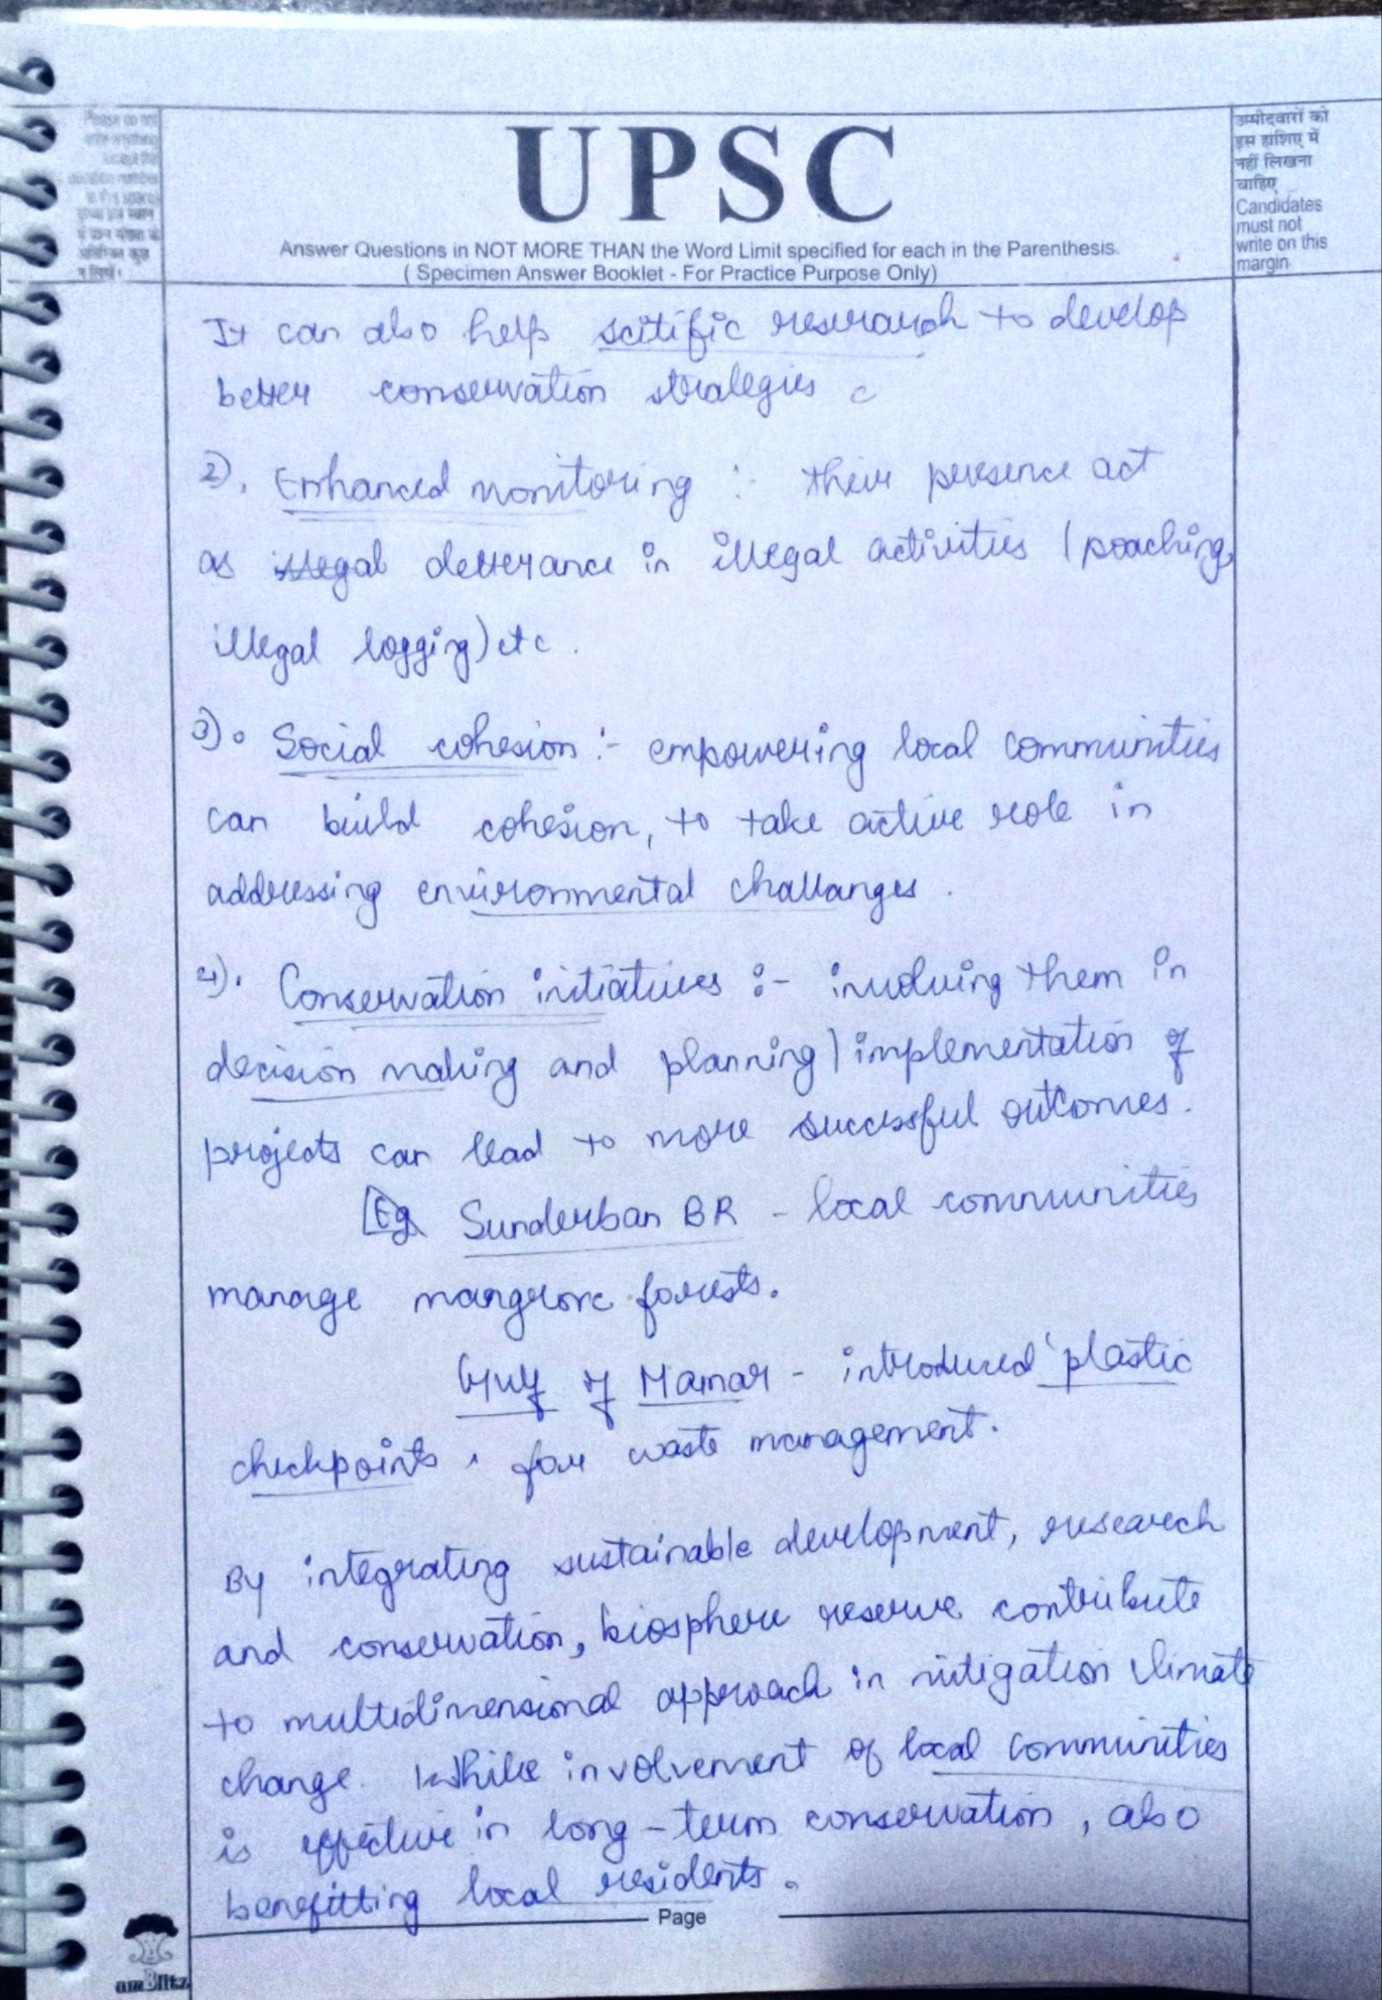 उम्मीदवारों को
इस हाशिए में
नहीं लिखना
चाहिए
Candidates
must not
write on this
margin
UPSC
Answer Questions in NOT MORE THAN the Word Limit specified for each in the Parenthesis.
( Specimen Answer Booklet - For Practice Purpose Only)
It can also help scitific research to develop
better conservation strategies
2). Enhanced monitoring : their presence act
as illegal detterance in illegal activities (poaching,
illegal logging) etc.
3). Social cohesion :- empowering local communities
can build cohesion, to take active role in
addressing environmental challanges.
4). Conservation initiatives :- involving them in
decision making and planning / implementation of
projects can lead to more successful outcomes.
Eg Sunderban BR - local communities
manage mangrove forests.
Gulf of Mamar - introduced 'plastic
checkpoints, for waste management.
By integrating sustainable development, research
and conservation, biosphere reserve contribute
to multidimensional approach in mitigation climate
change. While involvement of local communities
is effective in long-term conservation, also
benefitting local residents.
Page
amBlitz